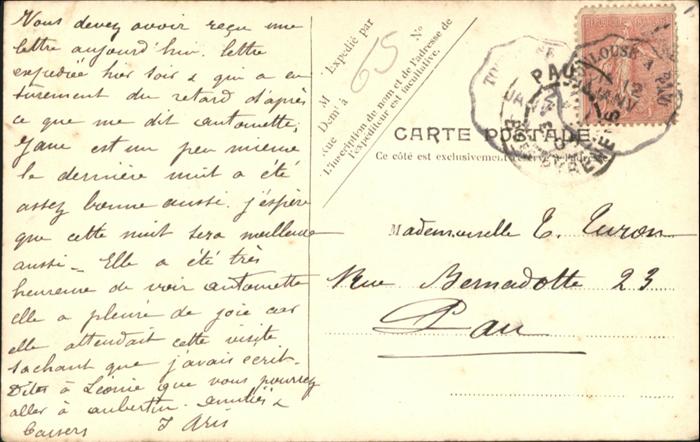 Vous devez avoir reçu une
lettre aujourd'hui. lettre
expédiée hier soir & qui a eu
surement du retard d'après
ce que me dit antoinette,
Jane est un peu mieux
la dernière nuit a été
assez bonne aussi. j'espère
que cette nuit sera meilleure
aussi - Elle a été très
heureuse de voir antoinette
elle a pleuré de joie car
elle attendait cette visite
sachant que j'avais écrit.
Dites à Léonie que vous pourrez
aller à aubertin. amitiés &
baisers
M Expédié par
Demt à Nº
Rue
L'inscription du nom et de l'adresse de
l'expéditeur est facultative.
65
CARTE POSTALE
Ce côté est exclusivement réservé à l'adresse
Mademoiselle E. Turon
Rue Bernadotte 23
Pau
TOULOUSE A PAU
12
JANV
PAU